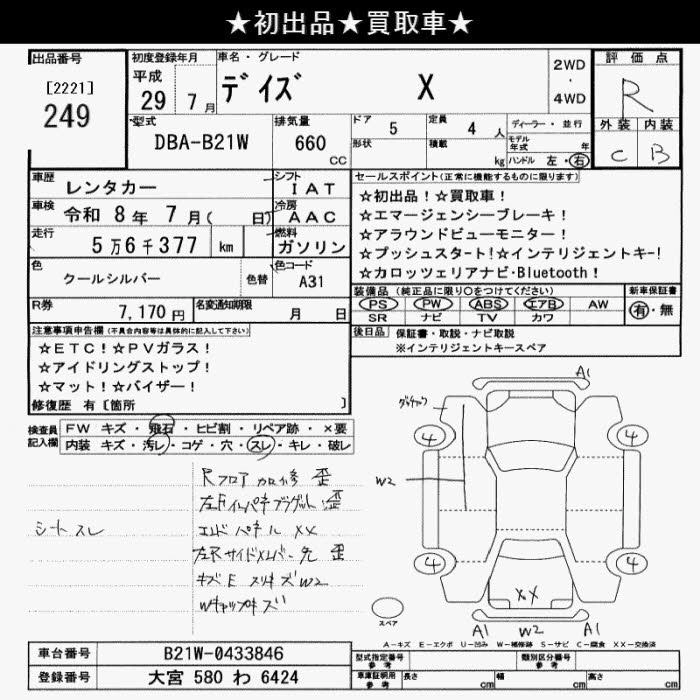 ★初出品★買取車★
出品番号
[2221]
249
初度登録年月
平成
29 7月
車名・グレード
デイズ X
2WD
・
4WD
評価点
R
外装 内装
C B
型式
DBA-B21W
排気量
660
CC
ドア 5
形状
定員 4 人
積載 kg
ディーラー・並行
モデル年式 年
ハンドル 左・右
車歴 レンタカー
シフト IAT
車検 令和 8年 7月( 日)
冷房 AAC
走行 5万6千377 km
燃料 ガソリン
色 クールシルバー
色替
色コード A31
R券 7,170円
名変通知期限 月 日
セールスポイント(正常に機能するものに限り)
☆初出品!☆買取車!
☆エマージェンシーブレーキ!
☆アラウンドビューモニター!
☆プッシュスタート!☆インテリジェントキー!
☆カロッツェリアナビ・Bluetooth!
装備品(純正品に限り○をつけてください)
PS PW ABS エアB AW
SR ナビ TV カワ
新車保証書
有・無
後日品 保証書・取説・ナビ取説
※インテリジェントキースペア
注意事項申告欄(不具合内容等は具体的に記入して下さい)
☆ETC!☆PVガラス!
☆アイドリングストップ!
☆マット!☆バイザー!
修復歴 有〔箇所 〕
検査員記入欄
FW キズ・飛石・ヒビ割・リペア跡・×要
内装 キズ・汚レ・コゲ・穴・スレ・キレ・破レ
シートスレ
Rフロア 歪
エンドパネル XX
キズE スリキズW2
A1
W2
4
4
4
4
XX
A1 W2 A1
スペア
A-キズ E-エクボ U-凹み W-補修跡 S-サビ C-腐食 XX-交換済
車台番号 B21W-0433846
登録番号 大宮 580 わ 6424
型式指定番号 参考
類別区分番号 参考
車庫証明用 参考
長さ cm 幅 cm 高さ cm